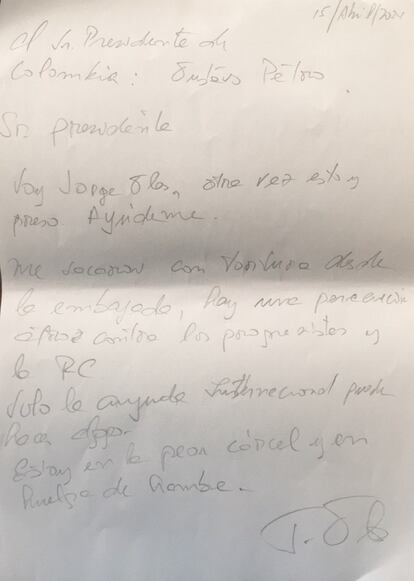 15/Abril/2024
Al Sr. Presidente de
Colombia: Gustavo Petro.
Sr presidente
Soy Jorge Glas, otra vez estoy
preso Ayúdeme.
Me sacaron con tortura desde
la embajada, hay una persecución
atroz contra los progresistas y
la RC
Solo la ayuda internacional puede
hacer algo.
Estoy en la peor cárcel y en
huelga de hambre.
J. Glas